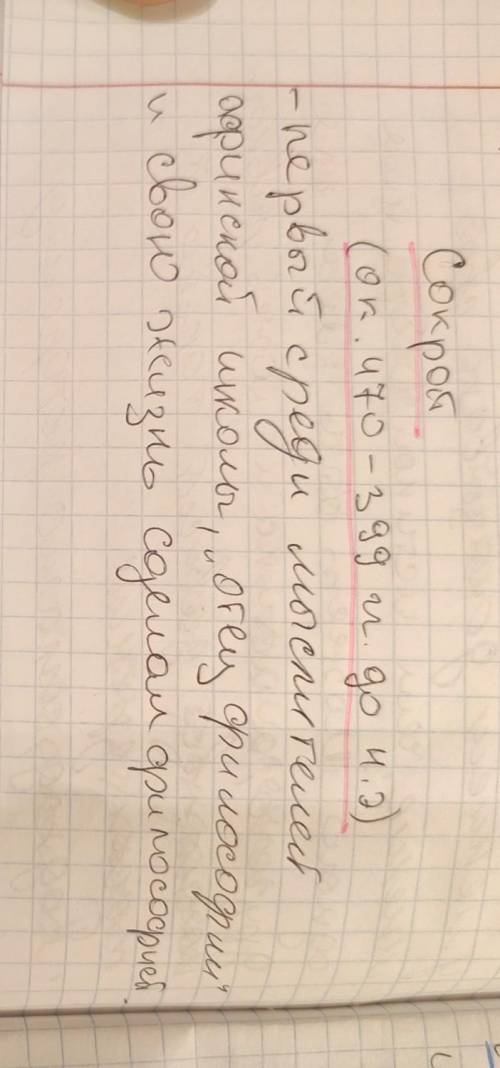 Сократ
(ок. 470-399 г. до н.э)
- первый среди мыслителей
афинской школы, "отец философии"
и свою жизнь сделал философией.